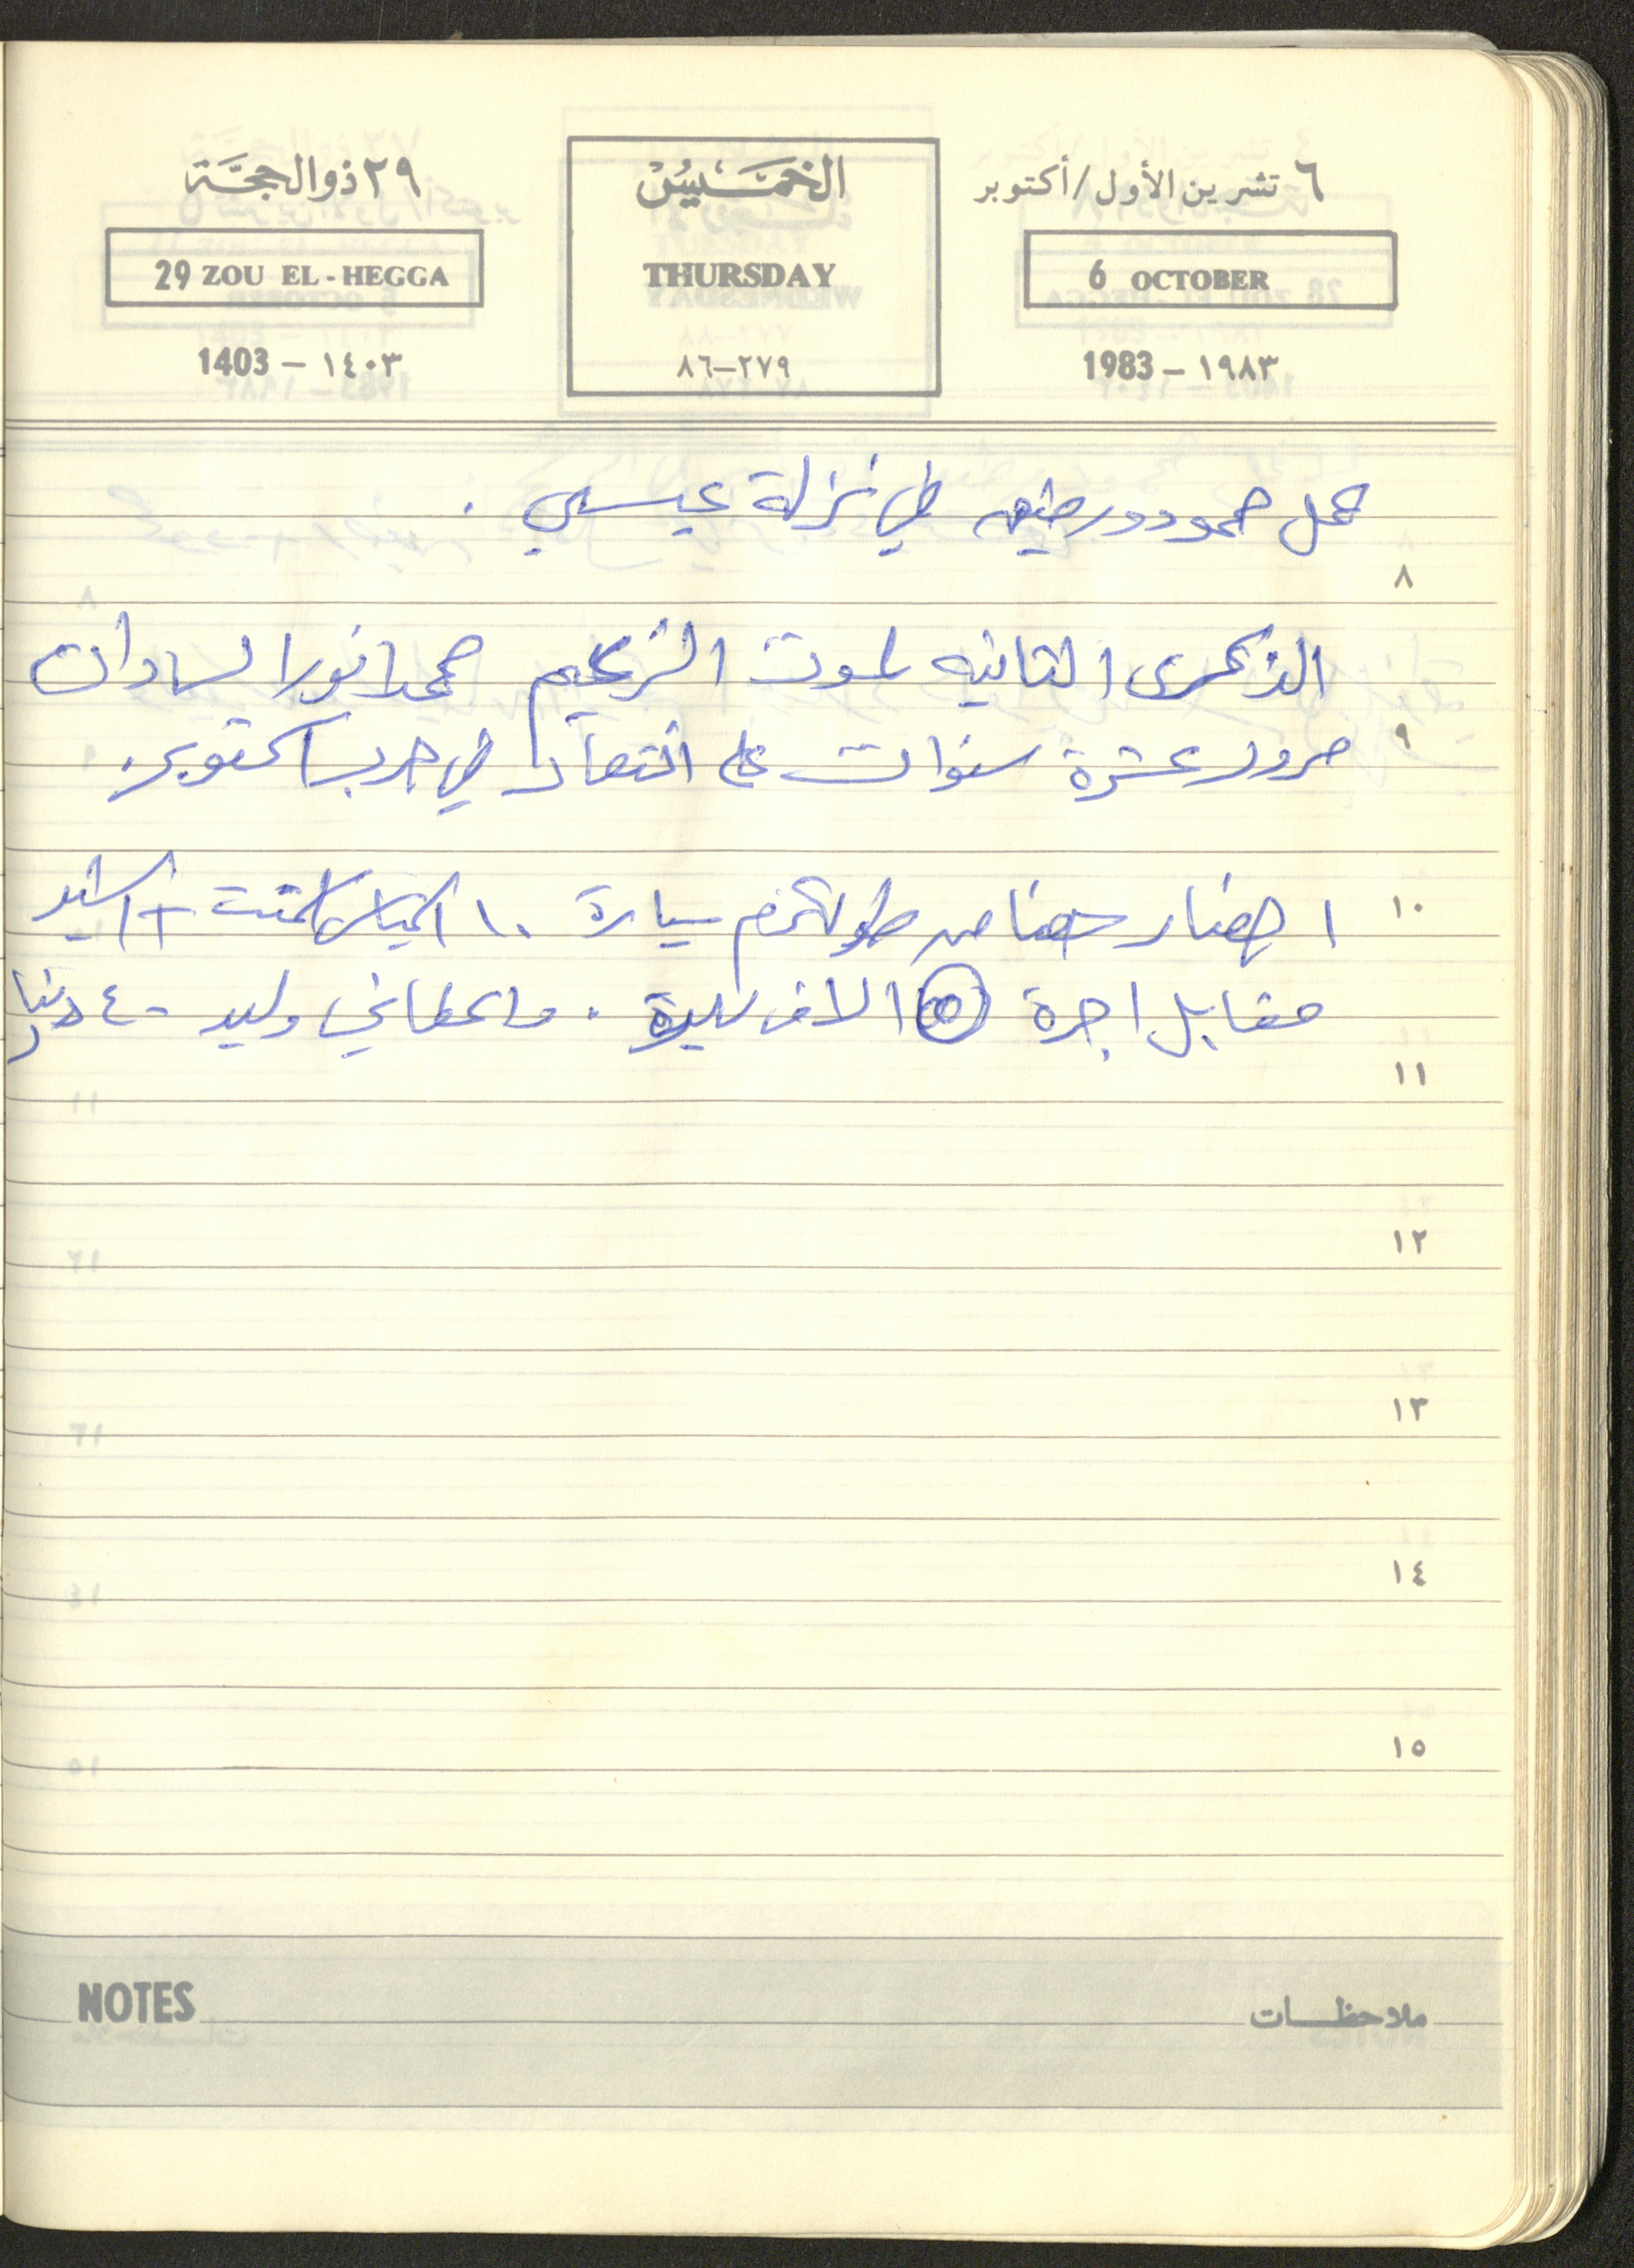 ٦ تشرين الأول/أكتوبر
الخميس
٢٩ ذو الحجة
6 OCTOBER
THURSDAY
29 ZOU EL-HEGGA
1983 – ١٩٨٣
٨٦–٢٧٩
1403 – ١٤٠٣
عمل حمود ورضيه في نزلة عيسى .
٨
الذكرى الثانيه لموت الزعيم محمد انور السادات
٩
مرور عشرة سنوات على انتصار في حرب اكتوبر.
١٠
احضار من طولكرم سيارة ١٠ اكياس اسمنت
مقابل اجرة الاف ليرة . واعطاني وليد ٤٠ دينار
١١
١٢
١٣
١٤
١٥
NOTES
ملاحظات